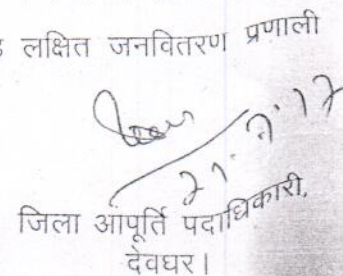 लक्षित जनवितरण प्रणाली
जिला आपूर्ति पदाधिकारी,
देवघर।